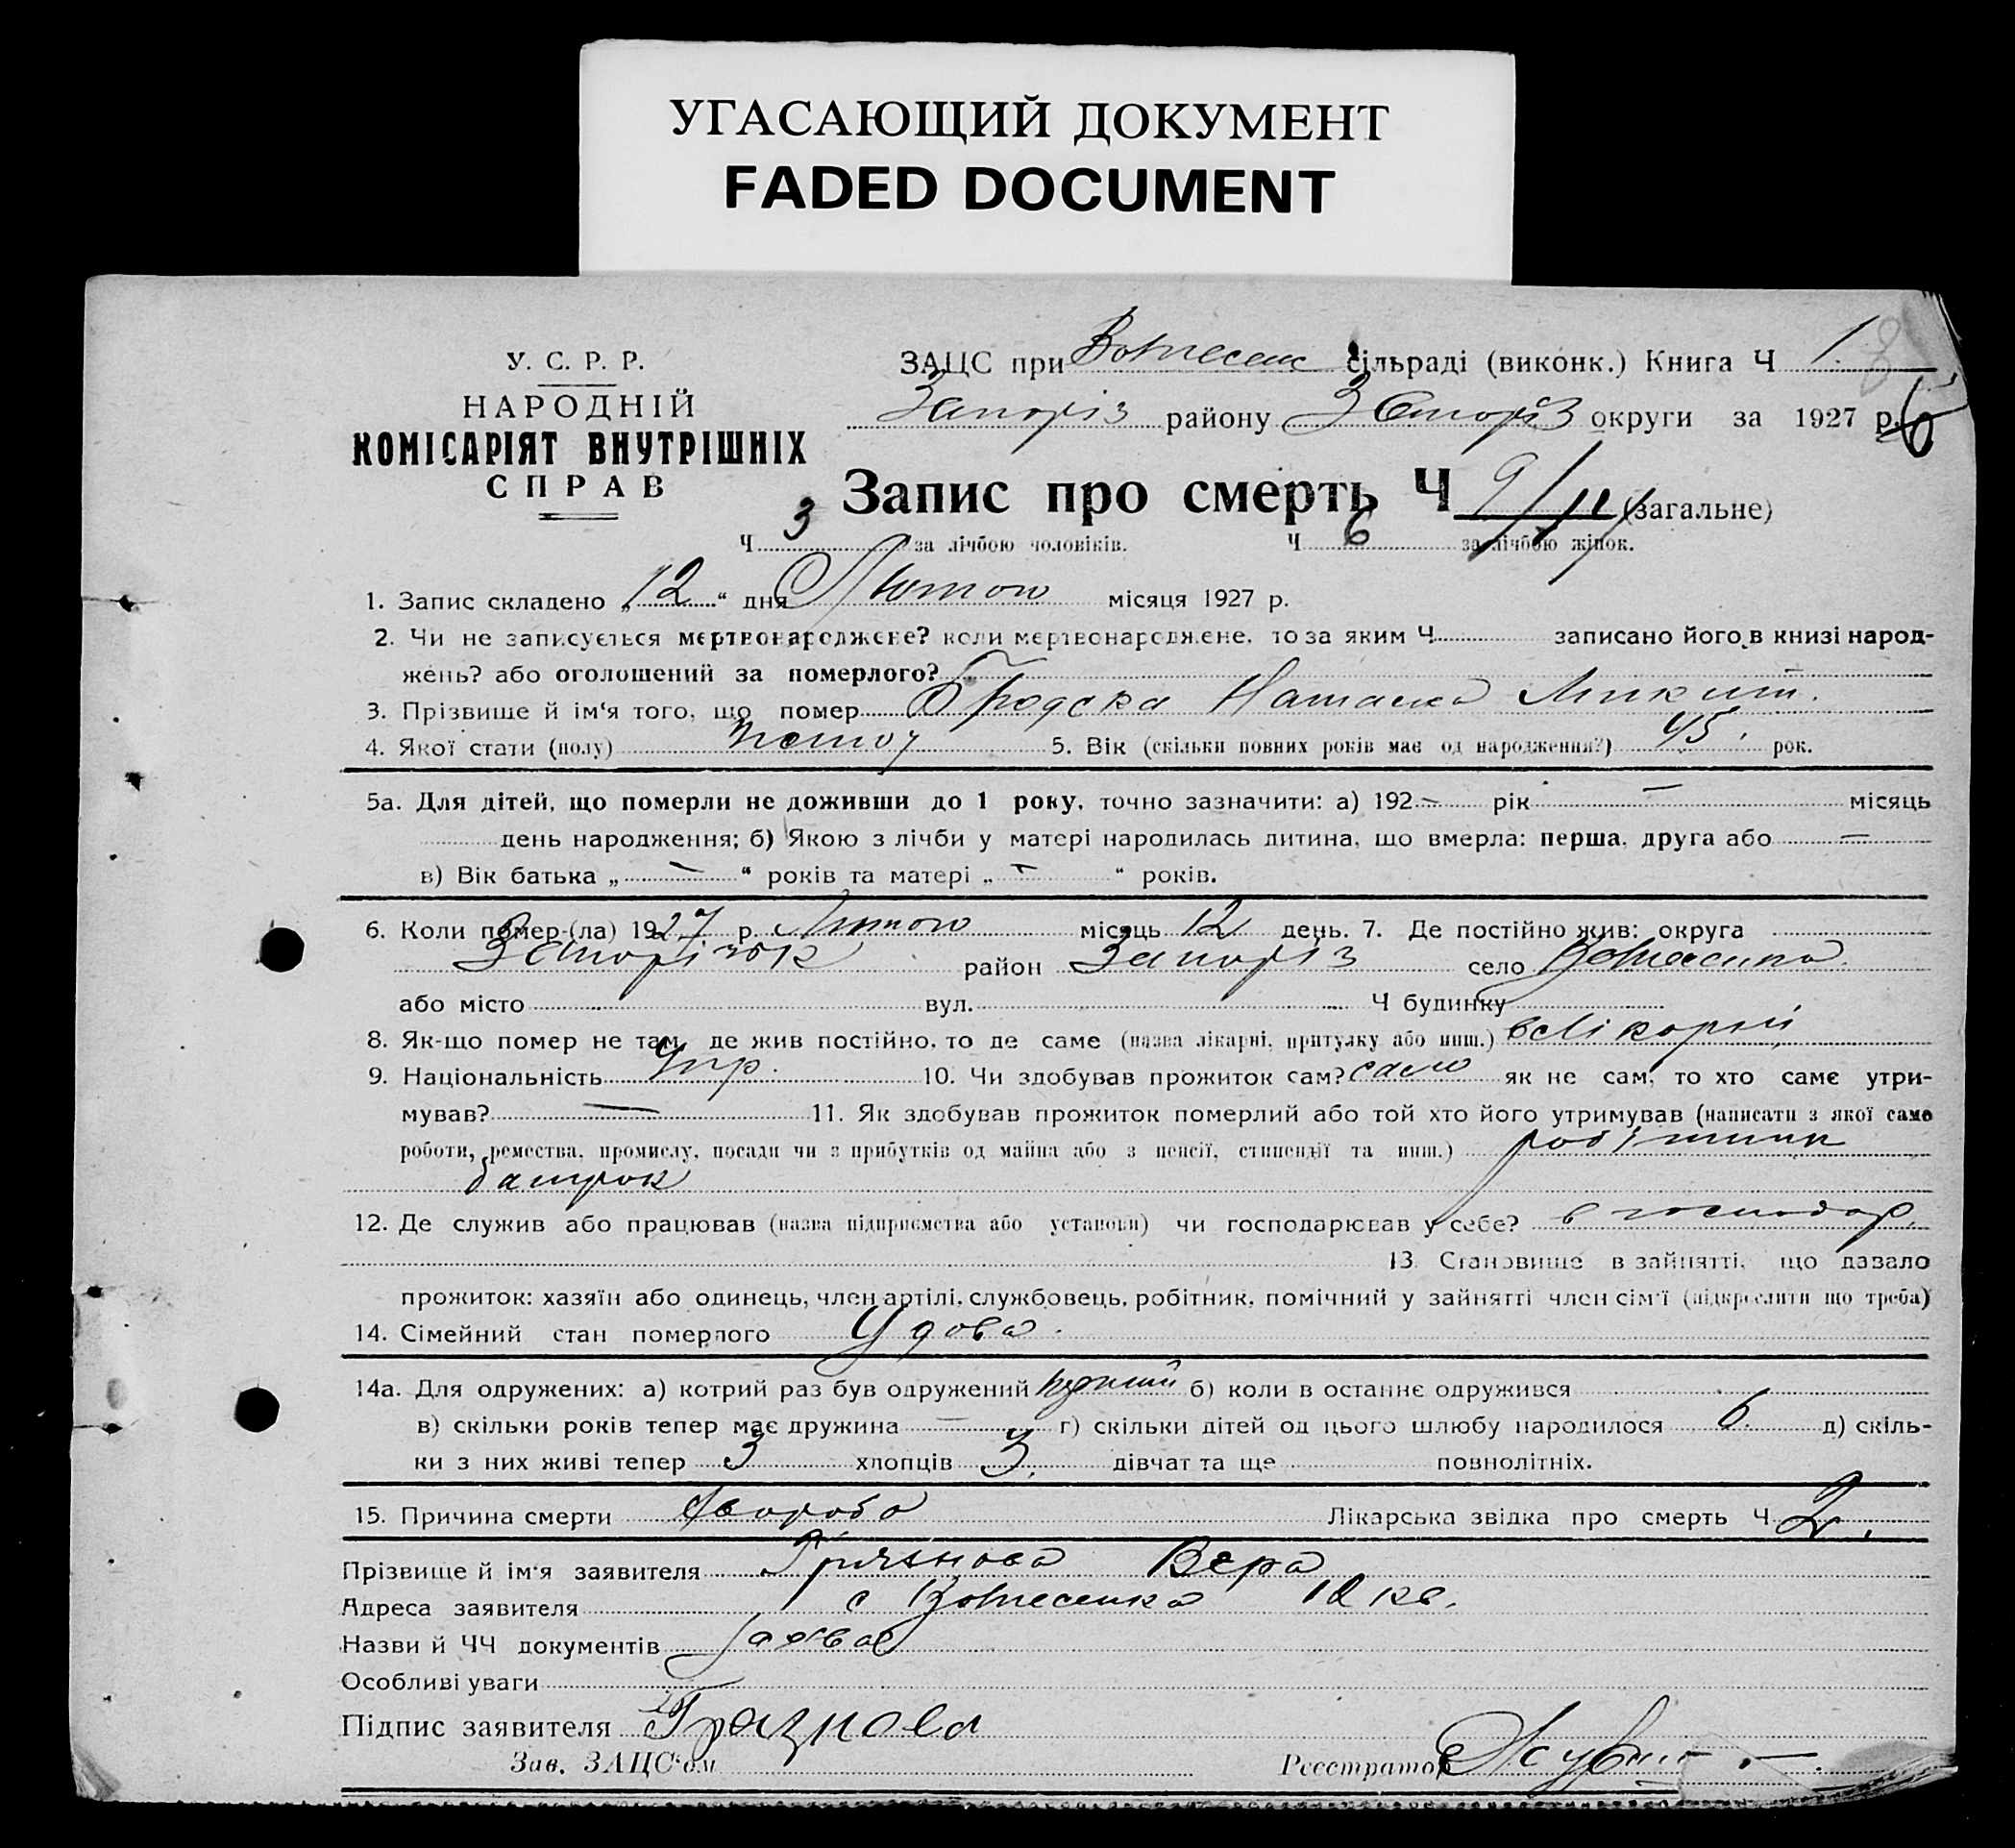 УГАСАЮЩИЙ ДОКУМЕНТ
FADED DOCUMENT
У. С. Р. Р.
НАРОДНІЙ
КОМІСАРІЯТ ВНУТРІШНІХ
СПРАВ
ЗАЦС при Вознесенс сільраді (виконк.) Книга Ч 1.
Запоріз району Запоріз округи за 1927 р. 6
Запис про смерть Ч 9/11 (загальне)
Ч 3 за лічбою чоловіків. Ч 6 за лічбою жінок.
1. Запис складено „12“ дня Лютого місяця 1927 р.
2. Чи не записується мертвонароджене? коли мертвонароджене, то за яким Ч записано його в книзі народ-
жень? або оголошений за померлого?
3. Прізвище й ім'я того, що помер Бродска Наталка Микит.
4. Якої стати (полу) 5. Вік (скільки повних років має од народження?) 45. рок.
5а. Для дітей, що померли не доживши до 1 року, точно зазначити: а) 192 – рік — місяць
день народження; б) Якою з лічби у матері народилась дитина, що вмерла: перша, друга або —
в) Вік батька „ — “ років та матері „ — “ років.
6. Коли помер-(ла) 1927 р. Лютого місяць 12 день. 7. Де постійно жив: округа
Запорізьк район Запоріз село Вознесенка
або місто вул. Ч будинку
8. Як-що помер не там, де жив постійно, то де саме (назва лікарні, притулку або инш.) в лікарні
9. Національність Укр. 10. Чи здобував прожиток сам? само як не сам, то хто саме утри-
мував? — 11. Як здобував прожиток померлий або той хто його утримував (написати з якої саме
роботи, ремества, промислу, посади чи з прибутків од майна або з пенсії, стипендії та инш.) робітник
батрак
12. Де служив або працював (назва підприємства або установи) чи господарював у себе? в господар.
13. Становище в зайнятті, що давало
прожиток: хазяїн або одинець, член артілі, службовець, робітник, помічний у зайнятті член сім'ї (підкреслити що треба)
14. Сімейний стан померлого Удова.
14а. Для одружених: а) котрий раз був одружений перший б) коли в останнє одружився
в) скільки років тепер має дружина — г) скільки дітей од цього шлюбу народилося 6. д) скіль-
ки з них живі тепер 3 хлопців 3. дівчат та ще повнолітніх.
15. Причина смерти Хвороба Лікарська звідка про смерть Ч 2.
Прізвище й ім'я заявителя Вєра
Адреса заявителя с Вознесенка 12 кв.
Назви й ЧЧ документів
Особливі уваги
Підпис заявителя Грязнова
Зав. ЗАЦС'ом Реєстратор